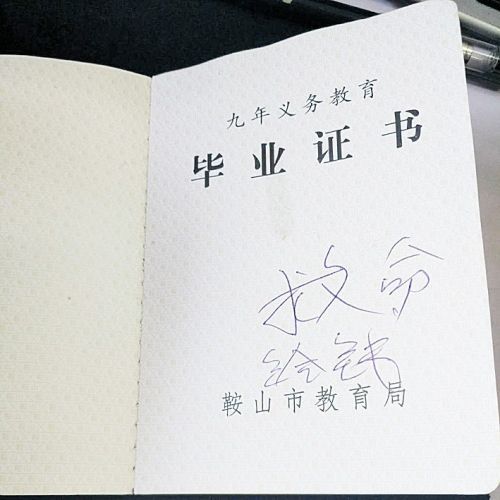 九年义务教育
毕业证书
救命
给钱
鞍山市教育局